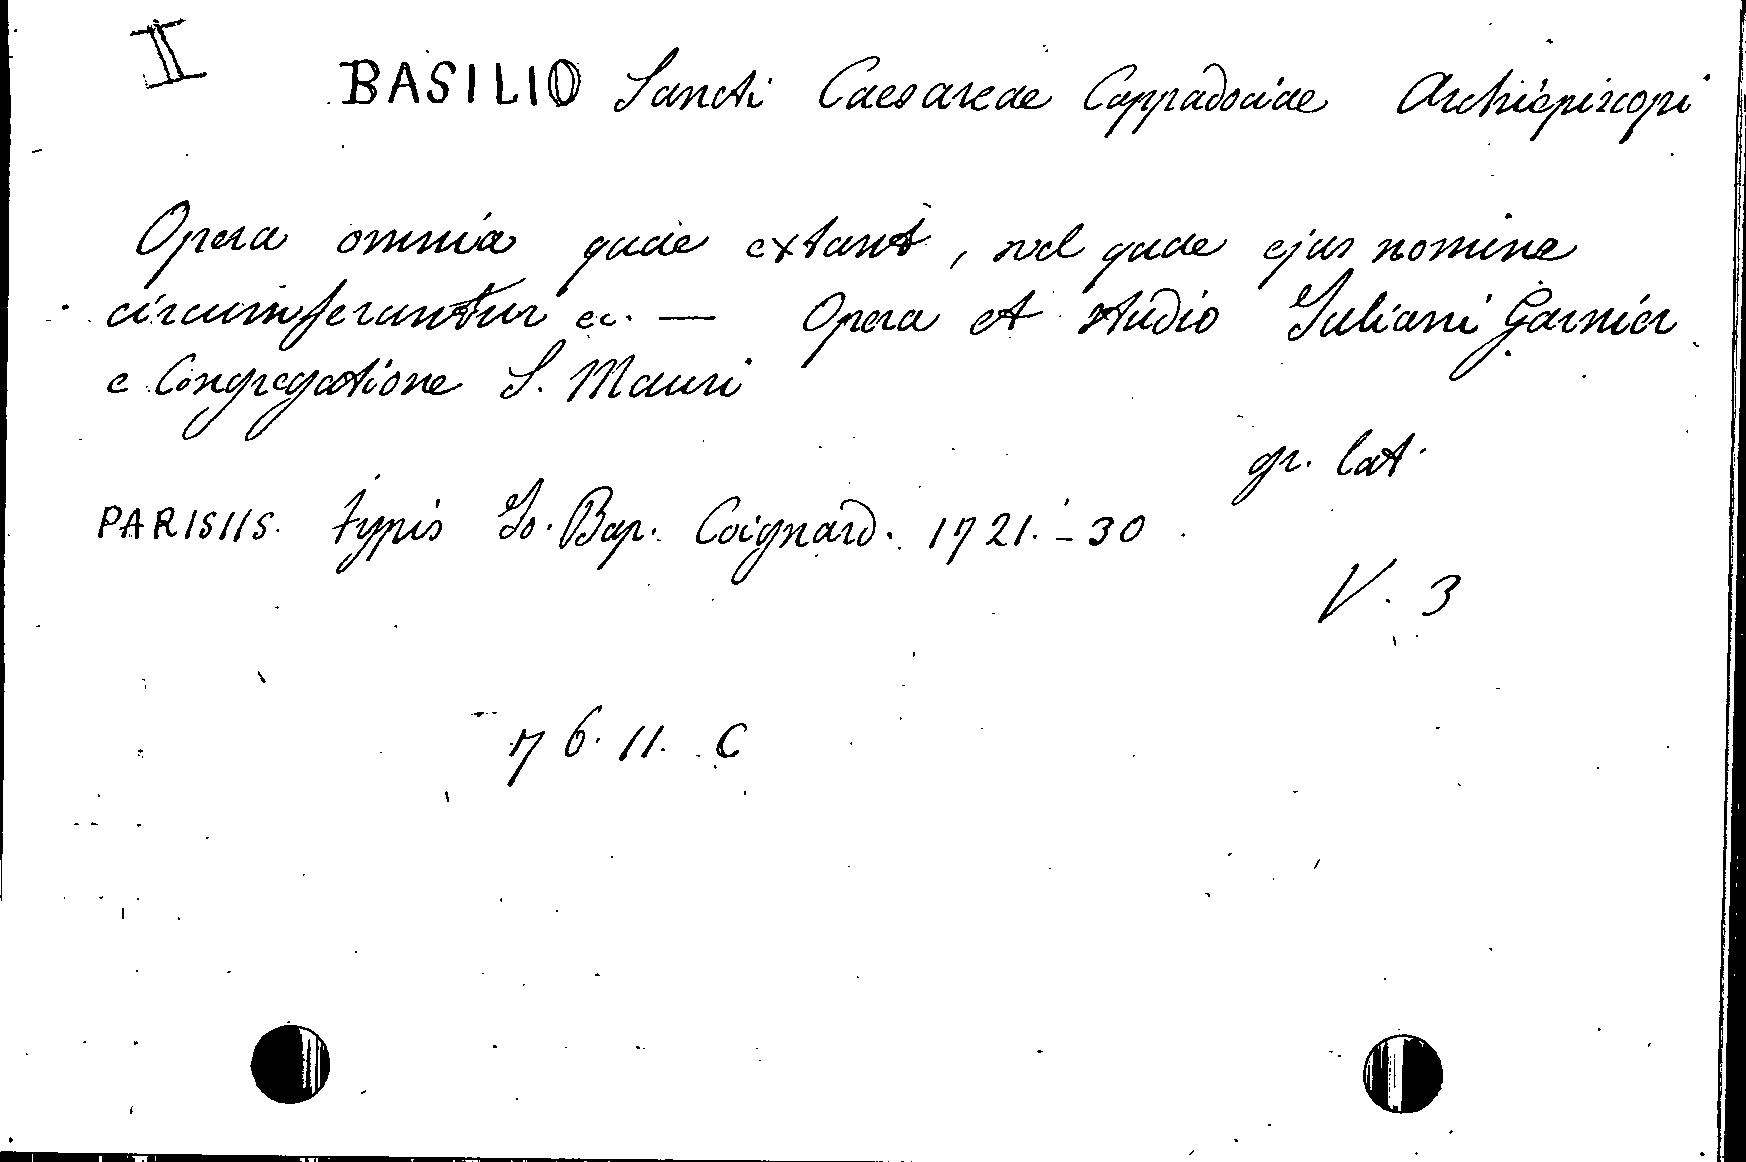 II
BASILIO Sancti Caesareae Cappadociae Archiepiscopi
Opera omnia quae extant, vel quae ejus nomine
circumferuntur ec. — Opera et studio Juliani Garnier
e Congregatione S. Mauri
gr. lat.
PARISIIS. typis Jo. Bap. Coignard. 1721.-30
V. 3
76. 11. C